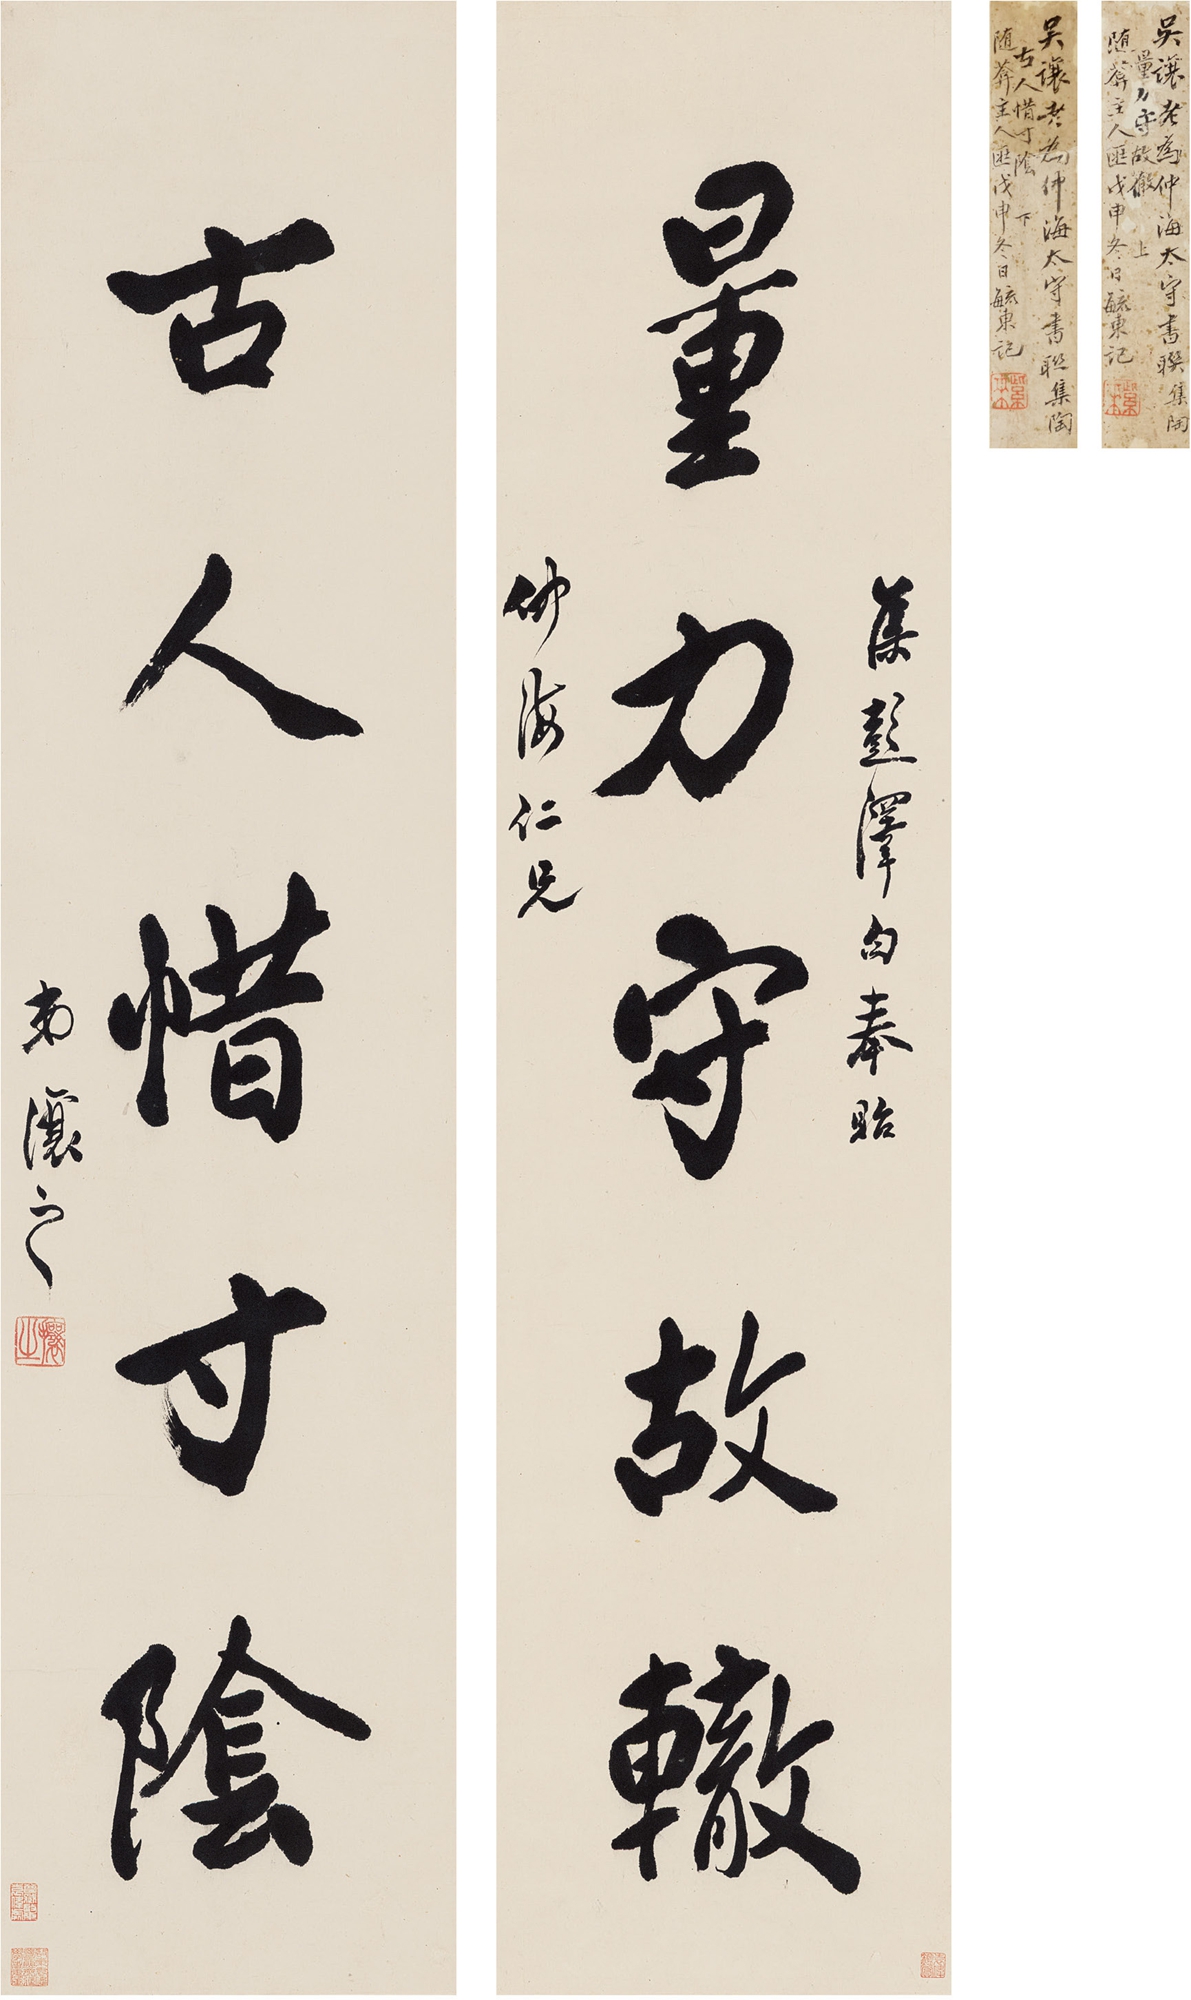 吳讓老為仲海太守書聯集陶
量力守故轍 上
随葊主人匧戊申冬日毓東記
吳讓老為仲海太守書聯集陶
古人惜寸陰 下
随葊主人匧戊申冬日毓東記
集彭澤句奉貽
量力守故轍
仲海仁兄
古人惜寸陰
弟讓之
攘之